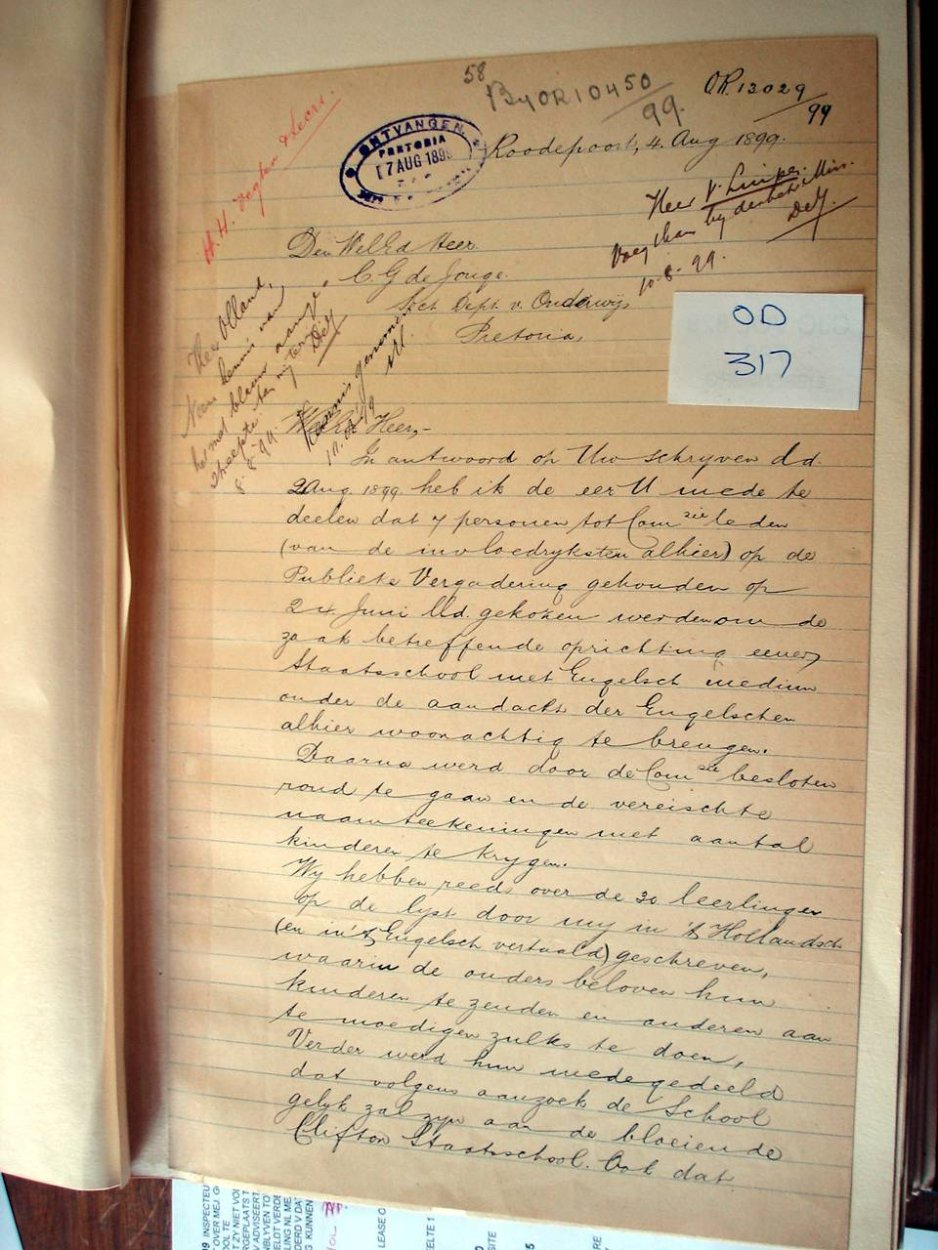 58
By OR 10450/99.
OR. 13029/99
ONTVANGEN
PRETORIA
17 AUG 189
Roodepoort, 4. Aug 1899.
Heer V.
10.8.99.
DeJ.
OD
317
Den WelEd Heer
C G de Jonge.
Sect. Dept. v. Onderwijs
Pretoria,
Heer Olland,
Neem kennis van
het met blauw aange-
DeJ
Kennis genomen
WelEd Heer,-
In antwoord op Uw schryven d.d.
2 Aug. 1899 heb ik de eer U mede te
deelen dat 7 personen tot Com sie leden
(van de invloedryksten alhier) op de
Publieke Vergadering gehouden op
24 Juni lld. gekozen werden om de
zaak betreffende oprichting eener
Staatsschool met Engelsch medium
onder de aandacht der Engelschen
alhier woonachtig te brengen.
Daarna werd door de Com sie besloten
rond te gaan en de vereischte
naamteekeningen met aantal
kinderen te krygen.
Wy hebben reeds over de 30 leerlingen
op de lyst door my in 't Hollandsch
(en in 't Engelsch vertaald) geschreven,
waarin de ouders beloven hun
kinderen te zenden en anderen aan
te moedigen zulks te doen,
Verder werd hun medegedeeld
dat volgens aanzoek de School
gelyk zal zyn aan de bloeiende
Clifton Staatsschool. Ook dat